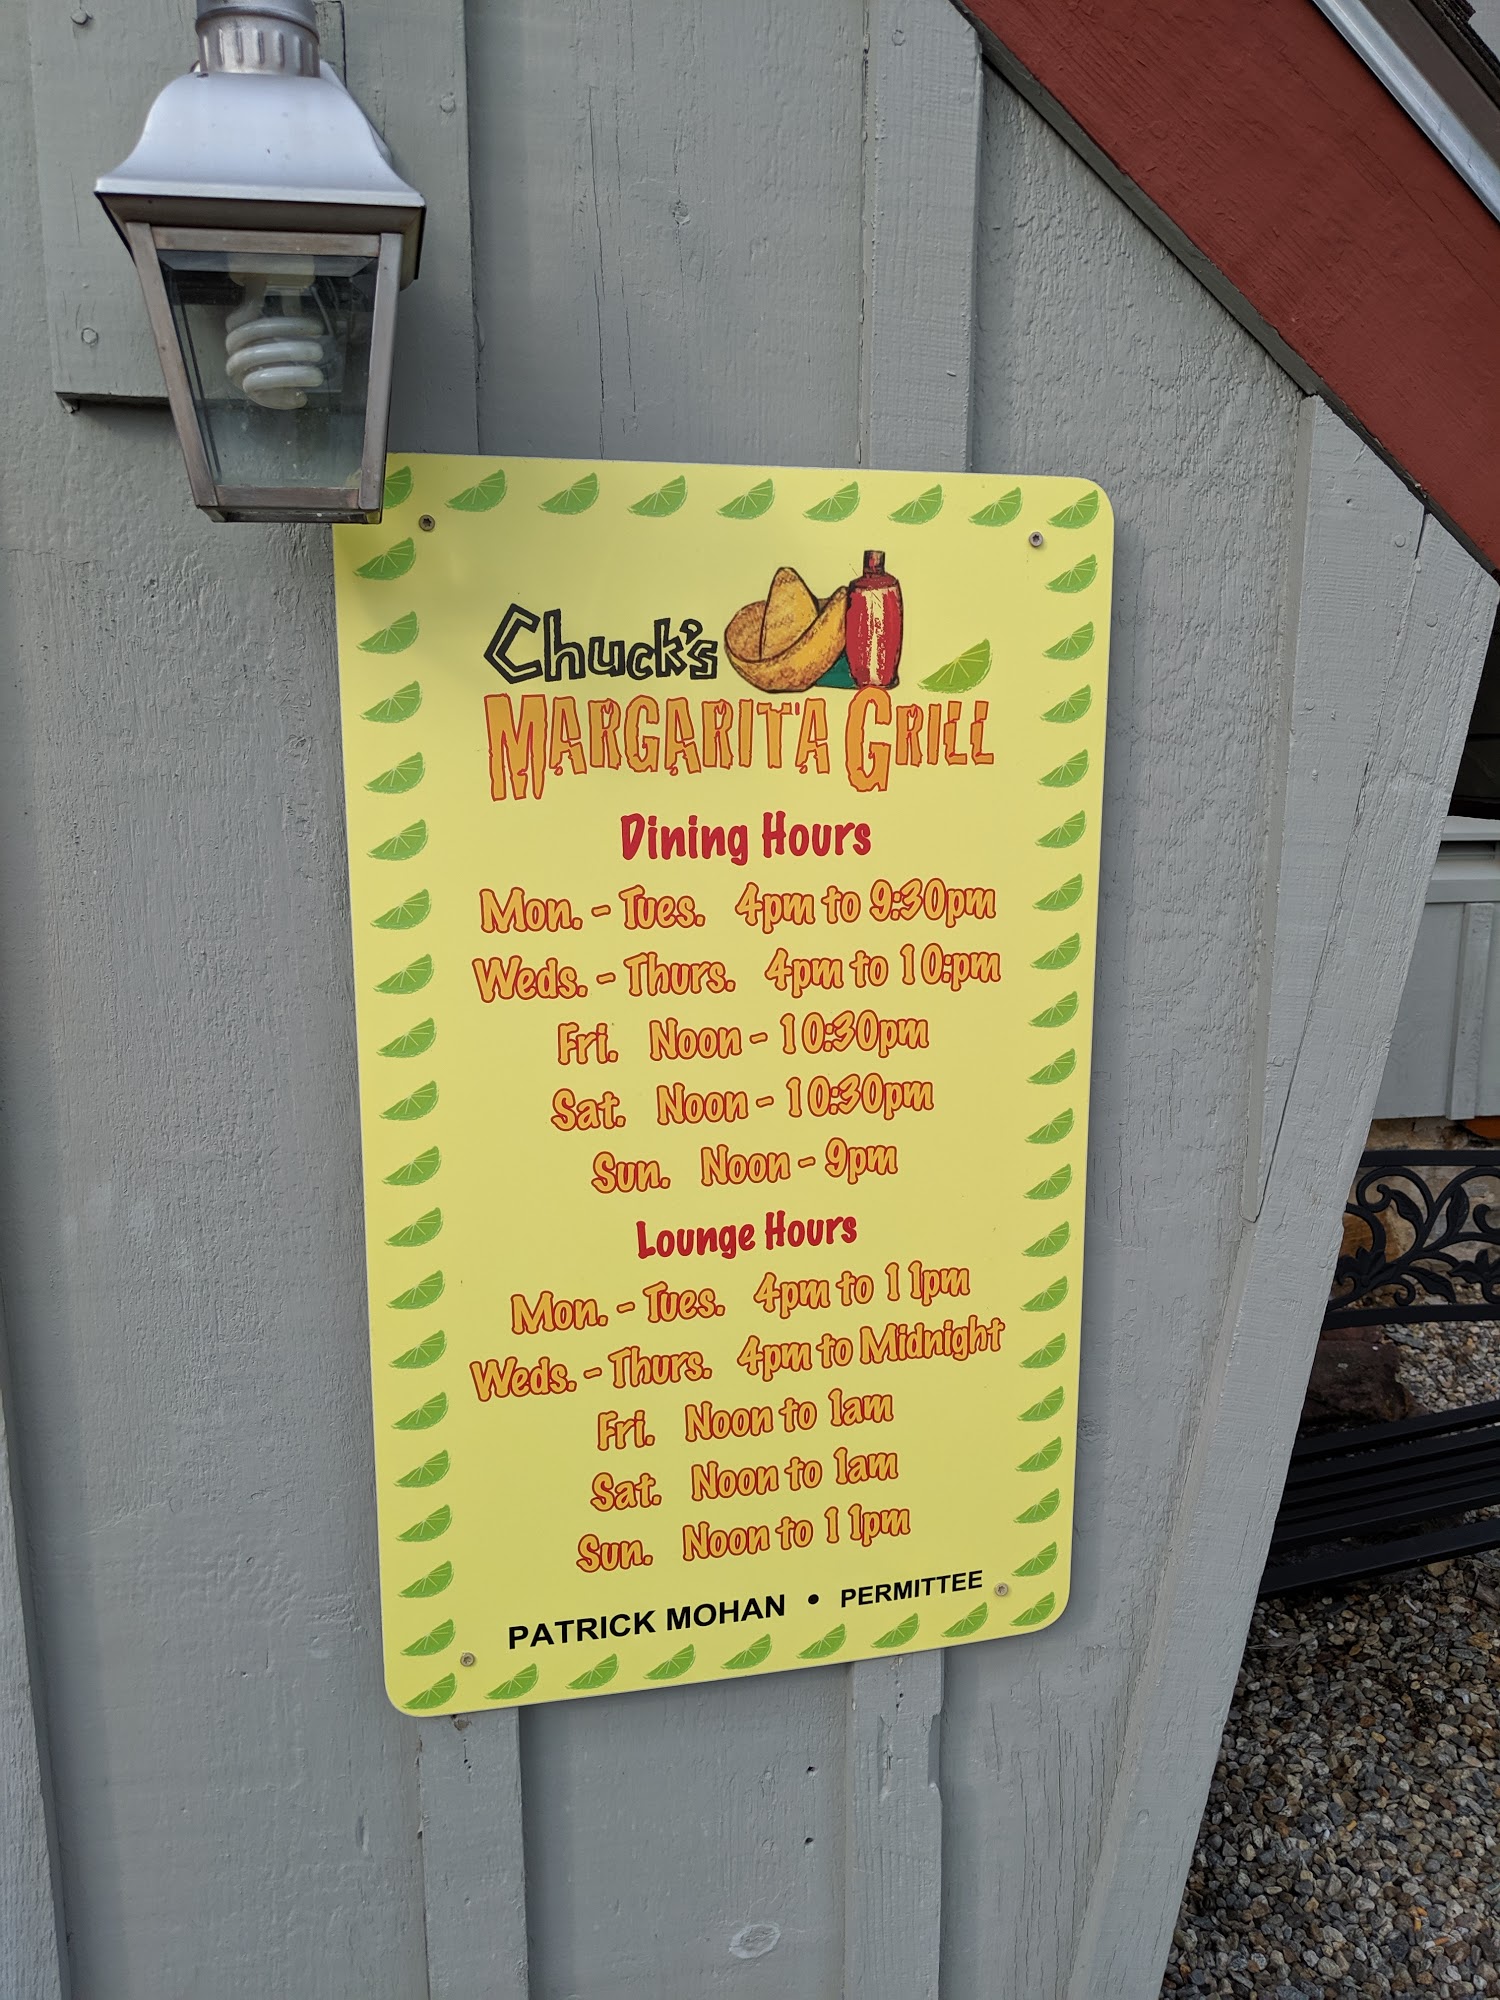 Chuck's
MARGARITA GRILL
Dining Hours
Mon. - Tues. 4pm to 9:30pm
Weds. - Thurs. 4pm to 10:pm
Fri. Noon - 10:30pm
Sat. Noon - 10:30pm
Sun. Noon - 9pm
Lounge Hours
Mon. - Tues. 4pm to 11pm
Weds. - Thurs. 4pm to Midnight
Fri. Noon to 1am
Sat. Noon to 1am
Sun. Noon to 11pm
PATRICK MOHAN • PERMITTEE